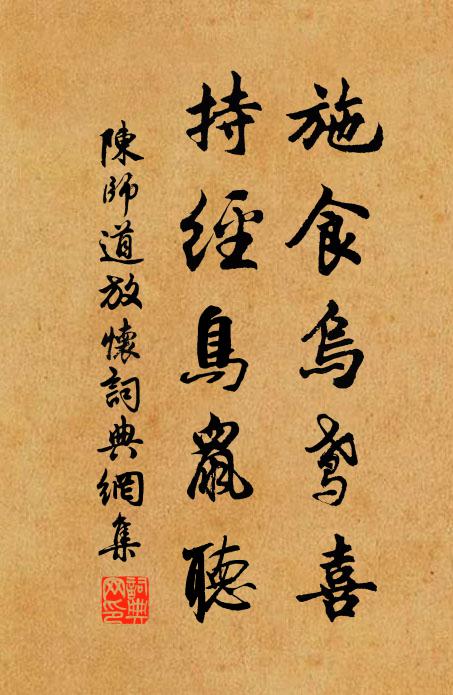 施食烏鳶喜
持經鳥鼠聽
陳師道放懷詞典網集
詞典網印